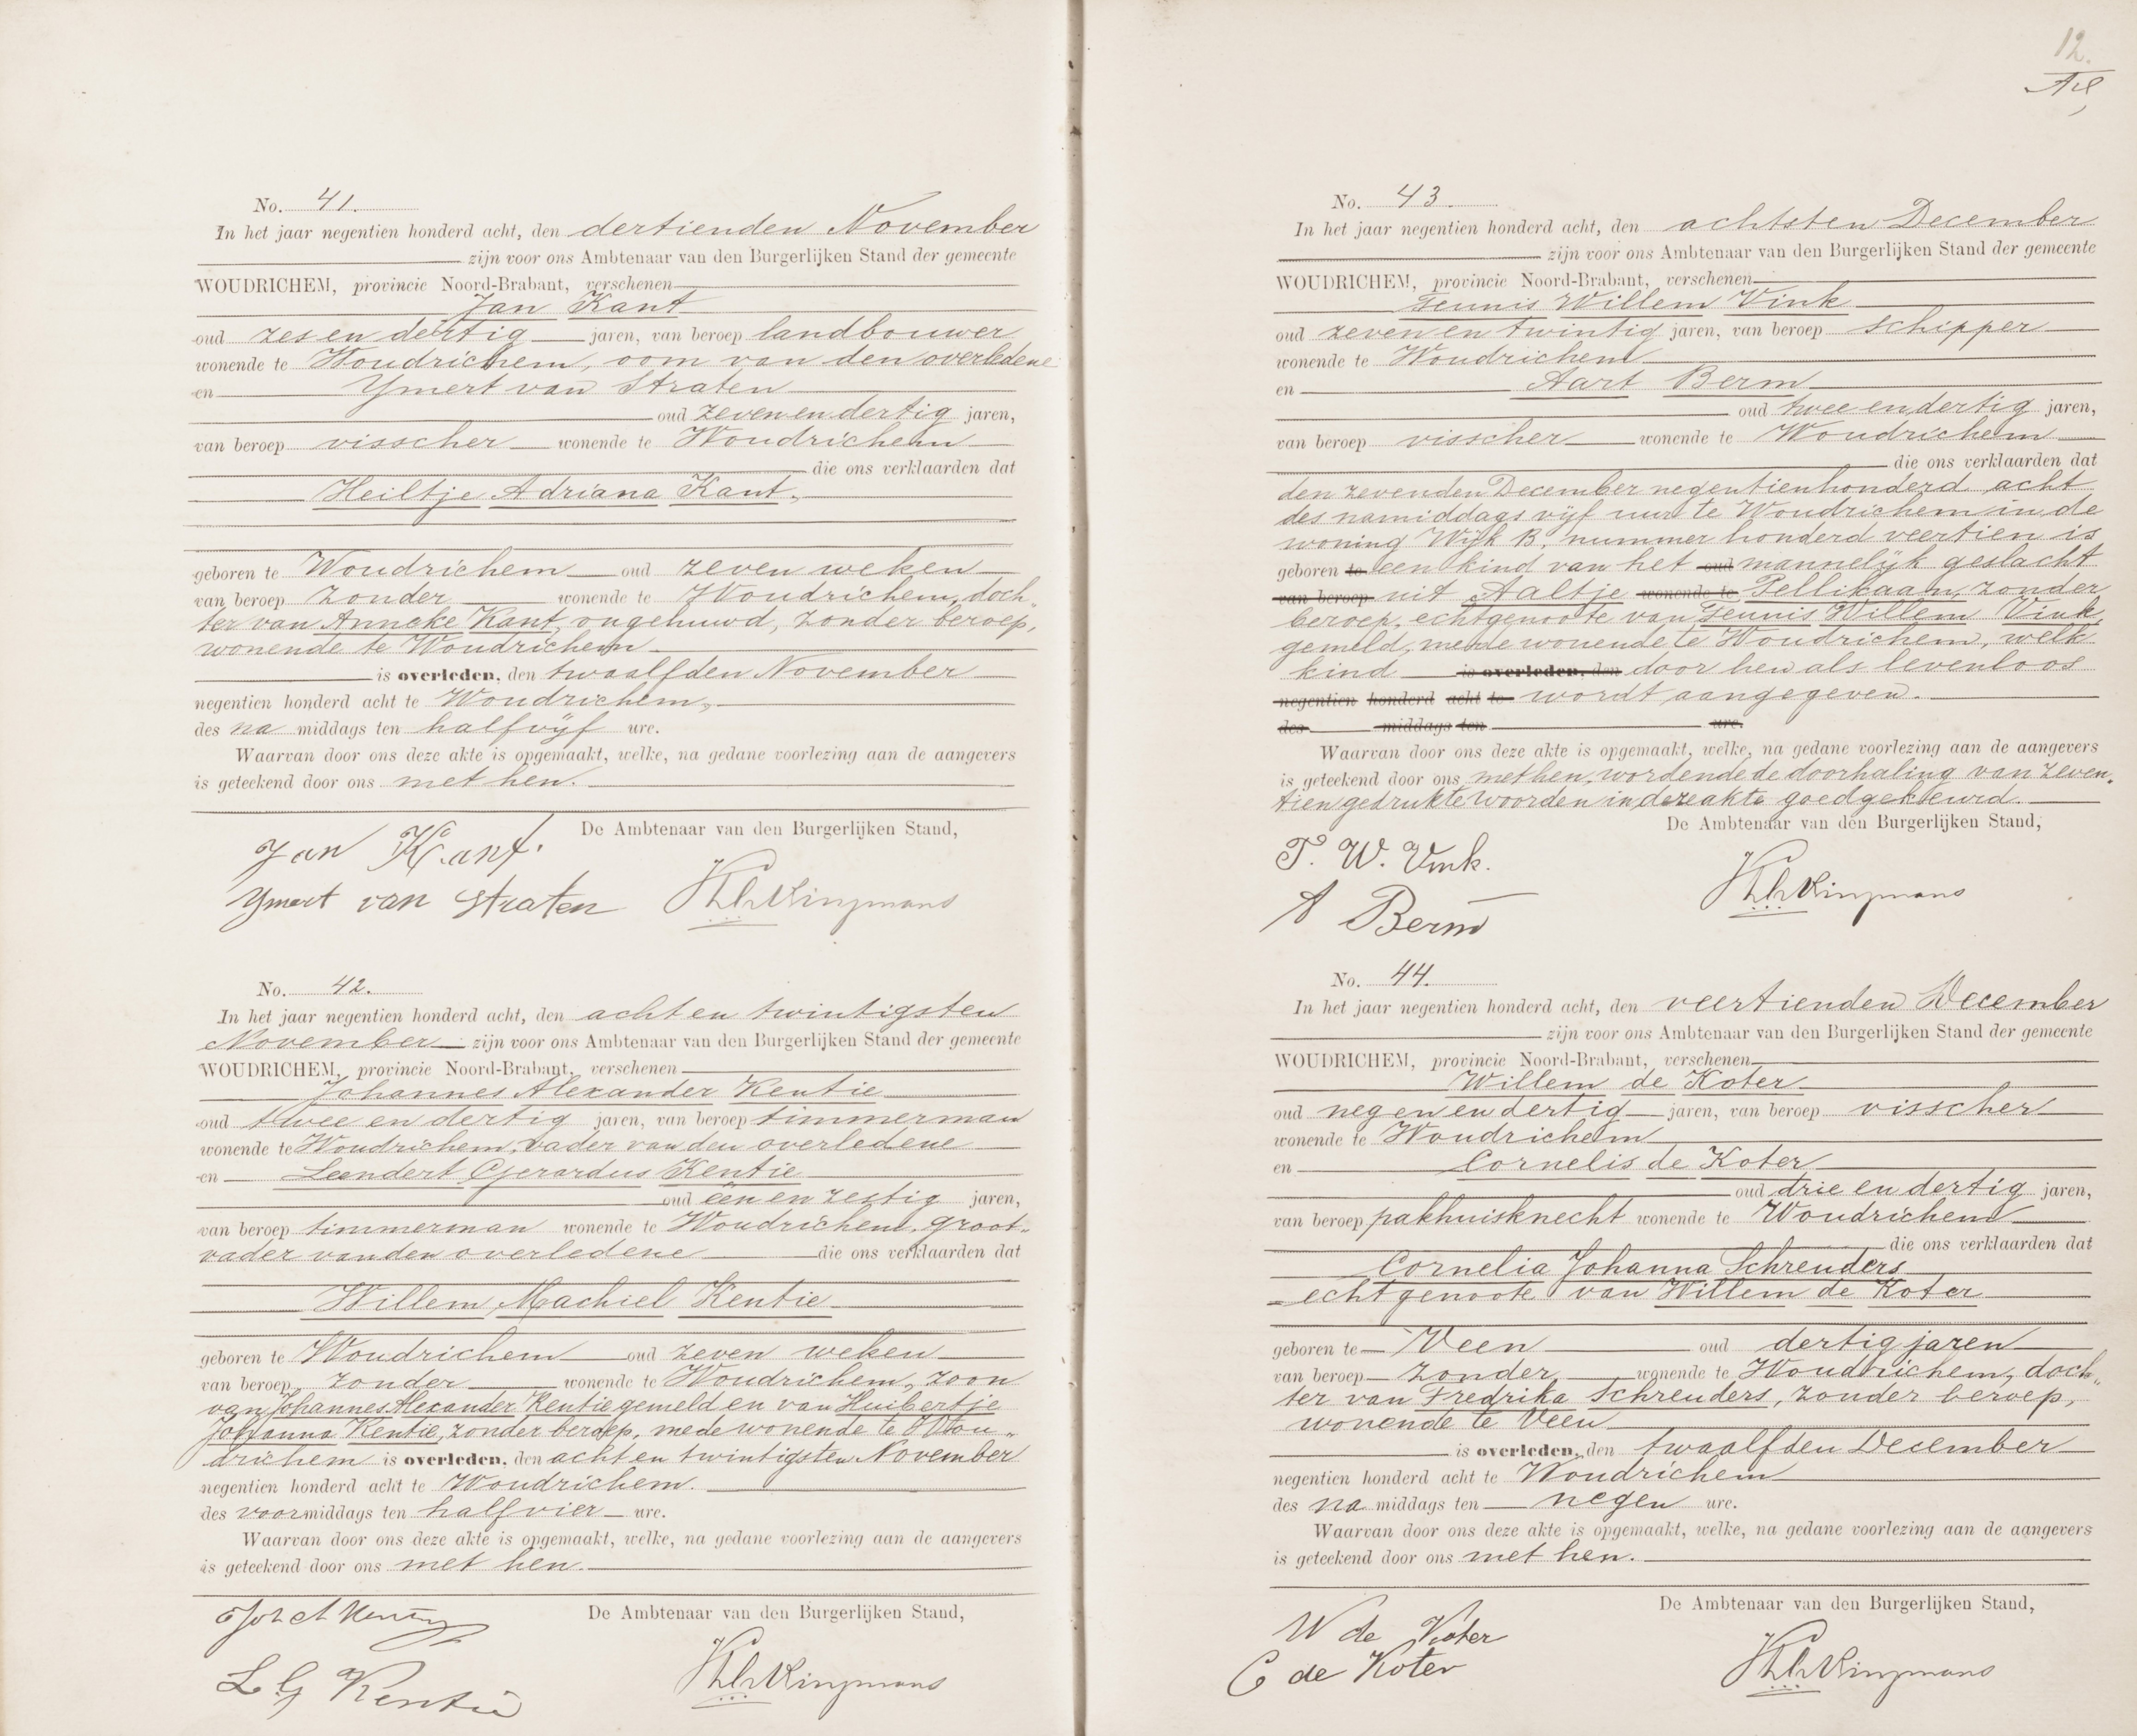 No. 41.
In het jaar negentien honderd acht, den dertienden November
zijn voor ons Ambtenaar van den Burgerlijken Stand der gemeente
WOUDRICHEM, provincie Noord-Brabant, verschenen
Jan Kant
oud zes en dertig jaren, van beroep landbouwer
wonende te Woudrichem, oom van den overledene
en Ymert van Straten
oud zeven en dertig jaren,
van beroep visscher wonende te Woudrichem
die ons verklaarden dat
Heiltje Adriana Kant,
geboren te Woudrichem oud zeven weken
van beroep zonder wonende te Woudrichem, doch„
ter van Anneke Kant, ongehuwd, zonder beroep,
wonende te Woudrichem
is overleden, den twaalfden November
negentien honderd acht te Woudrichem,
des na middags ten half vijf ure.
Waarvan door ons deze akte is opgemaakt, welke, na gedane voorlezing aan de aangevers
is geteekend door ons met hen.
De Ambtenaar van den Burgerlijken Stand,
Jan Kant.
Ymert van Straten
No. 42.
In het jaar negentien honderd acht, den acht en twintigsten
November zijn voor ons Ambtenaar van den Burgerlijken Stand der gemeente
WOUDRICHEM, provincie Noord-Brabant, verschenen
Johannes Alexander Kentie
oud twee en dertig jaren, van beroep timmerman
wonende te Woudrichem, vader van den overledene
en Leendert Gerardus Kentie
oud één en zestig jaren,
van beroep timmerman wonende te Woudrichem, groot„
vader van den overledene die ons verklaarden dat
Willem Machiel Kentie
geboren te Woudrichem oud zeven weken
van beroep zonder wonende te Woudrichem, zoon
van Johannes Alexander Kentie gemeld en van Huibertje
Johanna Kentie, zonder beroep, mede wonende te Wou„
drichem is overleden, den acht en twintigsten November
negentien honderd acht te Woudrichem.
des voormiddags ten half vier ure.
Waarvan door ons deze akte is opgemaakt, welke, na gedane voorlezing aan de aangevers
is geteekend door ons met hen.
De Ambtenaar van den Burgerlijken Stand,
Joh A Kentie
L G Kentie
12.
No. 43.
In het jaar negentien honderd acht, den achtsten December
zijn voor ons Ambtenaar van den Burgerlijken Stand der gemeente
WOUDRICHEM, provincie Noord-Brabant, verschenen
Teunis Willem Vink
oud zeven en twintig jaren, van beroep schipper
wonende te Woudrichem
en Aart Berm
oud twee en dertig jaren,
van beroep visscher wonende te Woudrichem
die ons verklaarden dat
den zevenden December negentienhonderd acht
des namiddags vijf uur te Woudrichem in de
woning Wijk B, nummer honderd veertien is
geboren te een kind van het oud mannelijk geslacht
van beroep uit Aaltje wonende te Pellikaan, zonder
beroep, echtgenoote van Teunis Willem Vink,
gemeld, mede wonende te Woudrichem, welk
kind is overleden, den door hen als levenloos
negentien honderd acht te wordt aangegeven.
des middags ten ure.
Waarvan door ons deze akte is opgemaakt, welke, na gedane voorlezing aan de aangevers
is geteekend door ons met hen, wordende de doorhaling van zeven„
tien gedrukte woorden in deze akte goedgekeurd.
De Ambtenaar van den Burgerlijken Stand,
T. W. Vink.
A Berm
No. 44.
In het jaar negentien honderd acht, den veertienden December
zijn voor ons Ambtenaar van den Burgerlijken Stand der gemeente
WOUDRICHEM, provincie Noord-Brabant, verschenen
Willem de Koter
oud negen en dertig jaren, van beroep visscher
wonende te Woudrichem
en Cornelis de Koter
oud drie en dertig jaren,
van beroep pakhuisknecht wonende te Woudrichem
die ons verklaarden dat
Cornelia Johanna Schreuders
echtgenoote van Willem de Koter
geboren te Veen oud dertig jaren
van beroep zonder wonende te Woudrichem, doch„
ter van Fredrika Schreuders, zonder beroep,
wonende te Veen
is overleden, den twaalfden December
negentien honderd acht te Woudrichem
des na middags ten negen ure.
Waarvan door ons deze akte is opgemaakt, welke, na gedane voorlezing aan de aangevers
is geteekend door ons met hen.
De Ambtenaar van den Burgerlijken Stand,
W de Koter
C de Koter